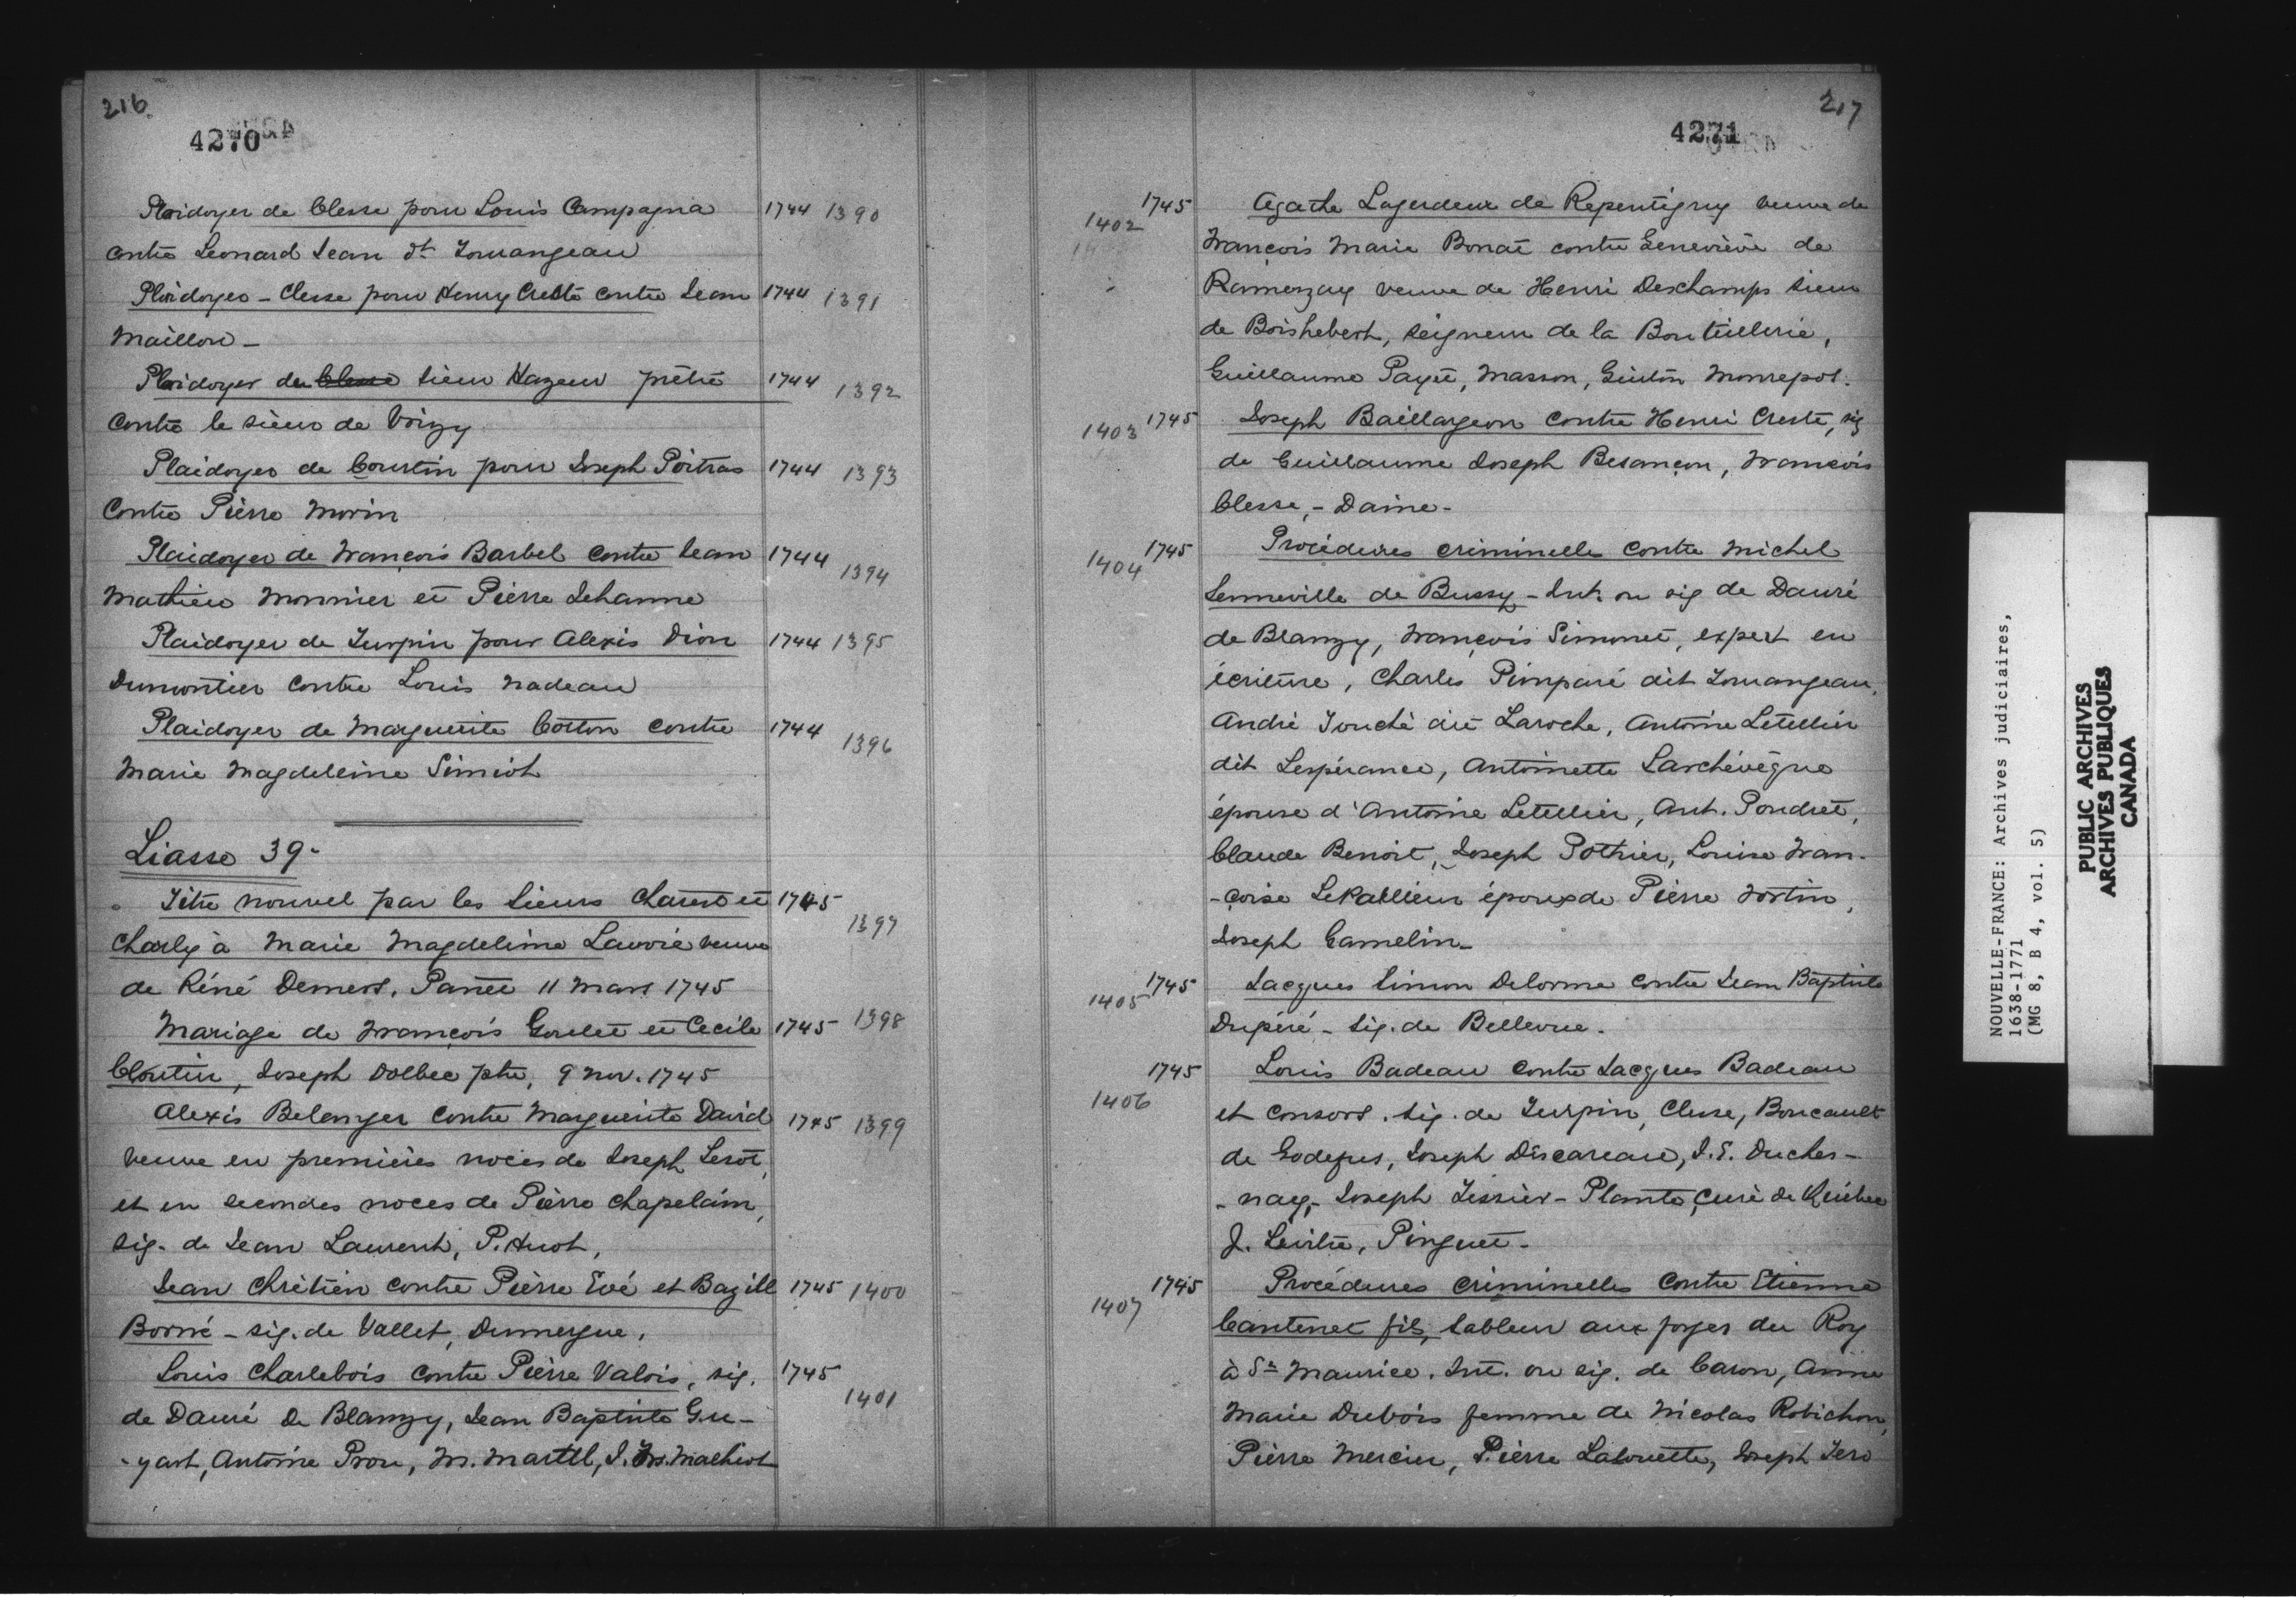 216.
4270
Plaidoyer de Clesse pour Louis Campagna 1744 1390
contre Leonard Jean dt Tourangeau
Plaidoyer - Clesse pour Henry Cresté contre Jean 1744 1391
Maillou -
Plaidoyer du Clesse sieur Hazeur prêtre 1744 1392
contre le sieur de Voizy
Plaidoyer de Courtin pour Joseph Poitras 1744 1393
Contre Pierre Morin
Plaidoyer de François Barbel contre Jean 1744 1394
Mathieu Monnier et Pierre Jehanne
Plaidoyer de Turpin pour Alexis Dion 1744 1395
Dumontier contre Louis Nadeau
Plaidoyer de Marguerite Cotton contre 1744 1396
Marie Magdeleine Simiot
Liasse 39-
Titre nouvel par les Sieurs Charest et 1745 1397
Charly à Marie Magdeleine Lavoie veuve
de Réné Demers. Panet 11 mars 1745
Mariage de François Goulet et Cecile 1745 1398
Cloutier, Joseph Dolbec ptre, 9 nov. 1745
Alexis Belanger contre Marguerite David 1745 1399
veuve en premières noces de Joseph
et en secondes noces de Pierre Chapelain,
sig. de Jean Laurent, P. Huot,
Jean Chrétien contre Pierre Evé et Bazill 1745 1400
Borné - sig. de Vallet, Dumergue,
Louis Charlebois contre Pierre Valois, sig. 1745 1401
de Dauré de Blanzy, Jean Baptiste Gu-
-yart, Antoine Prou, M. Martel, J. Machiot
217
4271
1402 1745 Agathe Legardeur de Repentigny veuve de
François Marie Bonat contre Geneviève de
Ramezay veuve de Henri Deschamps sieur
de Boishebert, seigneur de la Bouteillerie,
Guillaume Payet, Masson, Guiton Monrepos.
1403 1745 Joseph Baillargeon contre Henri Cresté, sig
de Guillaume Joseph Besançon, François
Clesse, - Daine -
1404 1745 Procédures criminelles contre Michel
Senneville de Bussy - Int. ou sig de Dauré
de Blanzy, François Simonet, expert en
écriture, Charles Pimparé dit Tourangeau,
André Touché dit Laroche, Antoine Letellier
dit Lespérance, Antoinette Larchévêque
épouse d'Antoine Letellier, Ant. Poudret,
Claude Benoit, Joseph Pothier, Louise Fran-
-çoise LePallieur épouse de Pierre Fortin,
Joseph Gamelin -
1405 1745 Jacques Simon Delorme contre Jean Baptiste
Dupéré - sig. de Bellevue.
1406 1745 Louis Badeau contre Jacques Badeau
et consors. sig. de Turpin, Clesse, Boucault
de Godefus, Joseph Discareau, J. E. Duches-
-nay, - Joseph Tessier - Plante, curé de Québec
J. Levitre, Pinguet -
1407 1745 Procédures criminelles contre Etienne
Cantenet fils, sableur aux forges du Roy
à St Maurice. Int. ou sig. de Caron, Anne
Marie Dubois femme de Nicolas Robichon,
Pierre Mercier, Pierre Lalouette, Joseph Jero
NOUVELLE-FRANCE: Archives judiciaires,
1638-1771
(MG 8, B 4, vol. 5)
PUBLIC ARCHIVES
ARCHIVES PUBLIQUES
CANADA